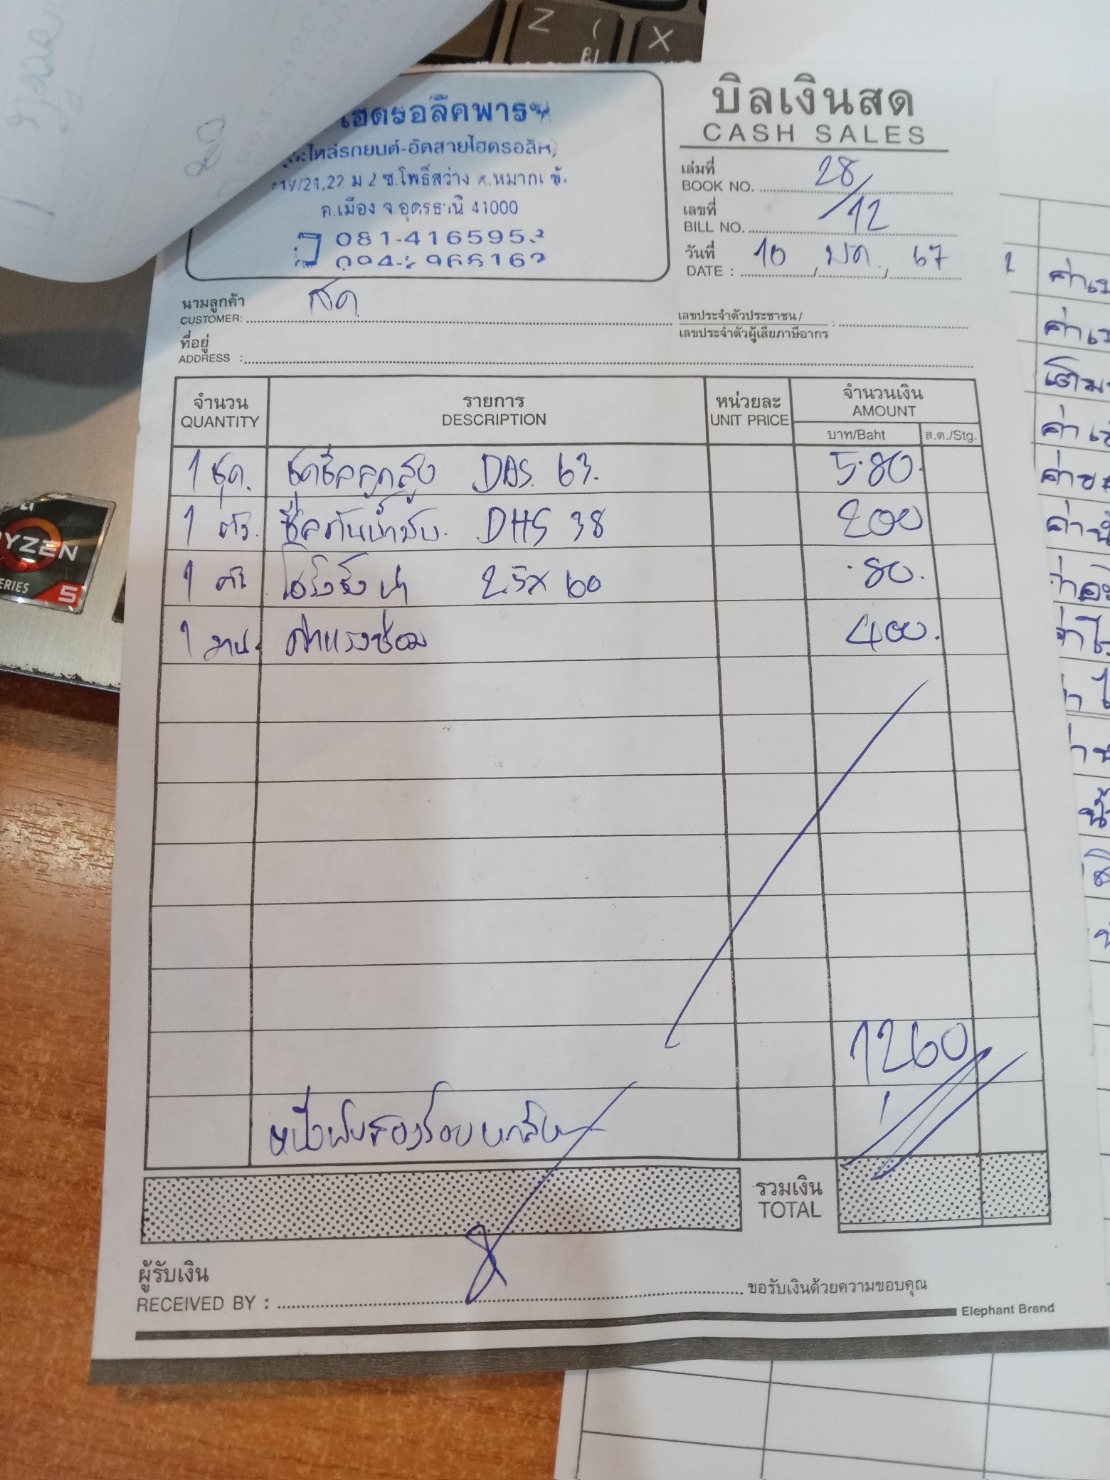 Z
X
ไฮดรอลิคพารท
อะไหล่รถยนต์-อัดสายไฮดรอลิค
ซ.โพธิ์สว่าง ต.หมากแข้ง
อ.เมือง จ.อุดรธานี 41000
081-416595
บิลเงินสด
CASH SALES
เล่มที่
BOOK NO. 28
เลขที่
BILL NO. 12
วันที่
DATE : 10 มค. 67
นามลูกค้า
CUSTOMER: สด
ที่อยู่
ADDRESS :
เลขประจำตัวประชาชน /
เลขประจำตัวผู้เสียภาษีอากร :
จำนวน รายการ หน่วยละ จำนวนเงิน
QUANTITY DESCRIPTION UNIT PRICE AMOUNT
บาท/Baht ส.ต./Stg.
1 ชุด. ชุดซีลลูกสูบ DAS. 63. 580.
1 ตัว. ซีลกันน้ำมัน. DHS 38 200
1 25x 60 80.
1 งาน. ค่าแรงซ่อม 400.
1260
หนึ่งพันสองร้อยหกสิบ
รวมเงิน
TOTAL
ผู้รับเงิน
RECEIVED BY : ขอรับเงินด้วยความขอบคุณ
Elephant Brand
RYZEN
SERIES 5